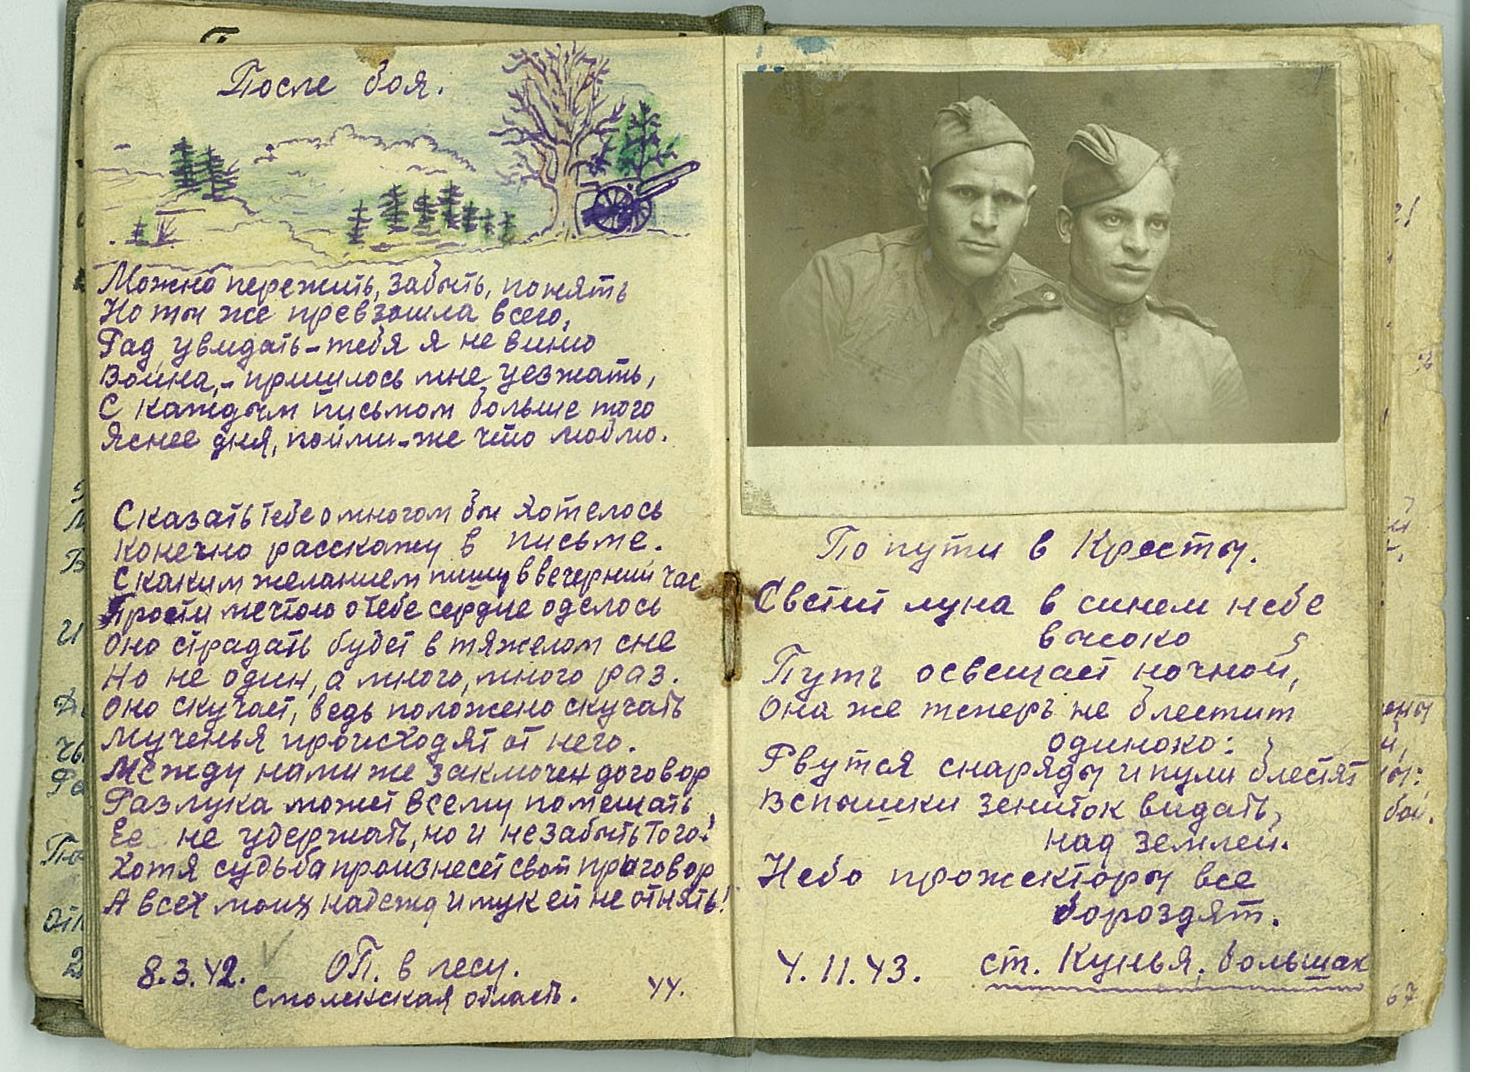 После боя.
Можно пережить, забыть, понять
Но ты же превзошла всего,
Рад увидать-тебя я не виню
Война,- пришлось мне уезжать,
С каждым письмом больше того
Яснее дня, пойми-же что люблю.
Сказать тебе о многом бы хотелось
Конечно расскажу в письме.
С каким желанием пишу в вечерний час
Прости мечтою о тебе сердце оделось
Оно страдать будет в тяжелом сне
Но не один, а много, много раз.
Оно скучает, ведь положено скучать
Мученья происходят от него.
Между нами же заключен договор
Разлука может всему помешать,
Ее не удержать, но и не забыть того!
Хотя судьба произнесет свой приговор
А всех моих надежд и мук ей не отнять!
8.3.42. ОП. в лесу.
Смоленская область. 44.
По пути в Кресты.
Светит луна в синем небе
высоко
Путь освещает ночной,
Она же теперь не блестит
одиноко:
Рвутся снаряды и пули блестят
Вспышки зениток видать,
над землей.
Небо прожекторы все
бороздят.
4.11.43. ст. Кунья, большак
67